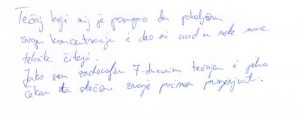 Tečaj koji mi je pomogao da poboljšam
svoju koncentraciju i ako si uvid u neke nove
tehnike čitanja.
Jako sam zadovoljan 7-dnevnim tečajem i jedva
čekam da stečeno znanje počnem primjenjivat.